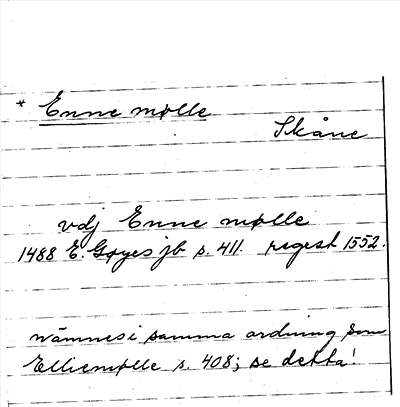 * Enne mølle
Skåne
vdj Enne mølle
1488 E. Gøyes jb s. 411. regest 1552.
nämnes i samma ordning som
Elliemølle s. 408; se detta!